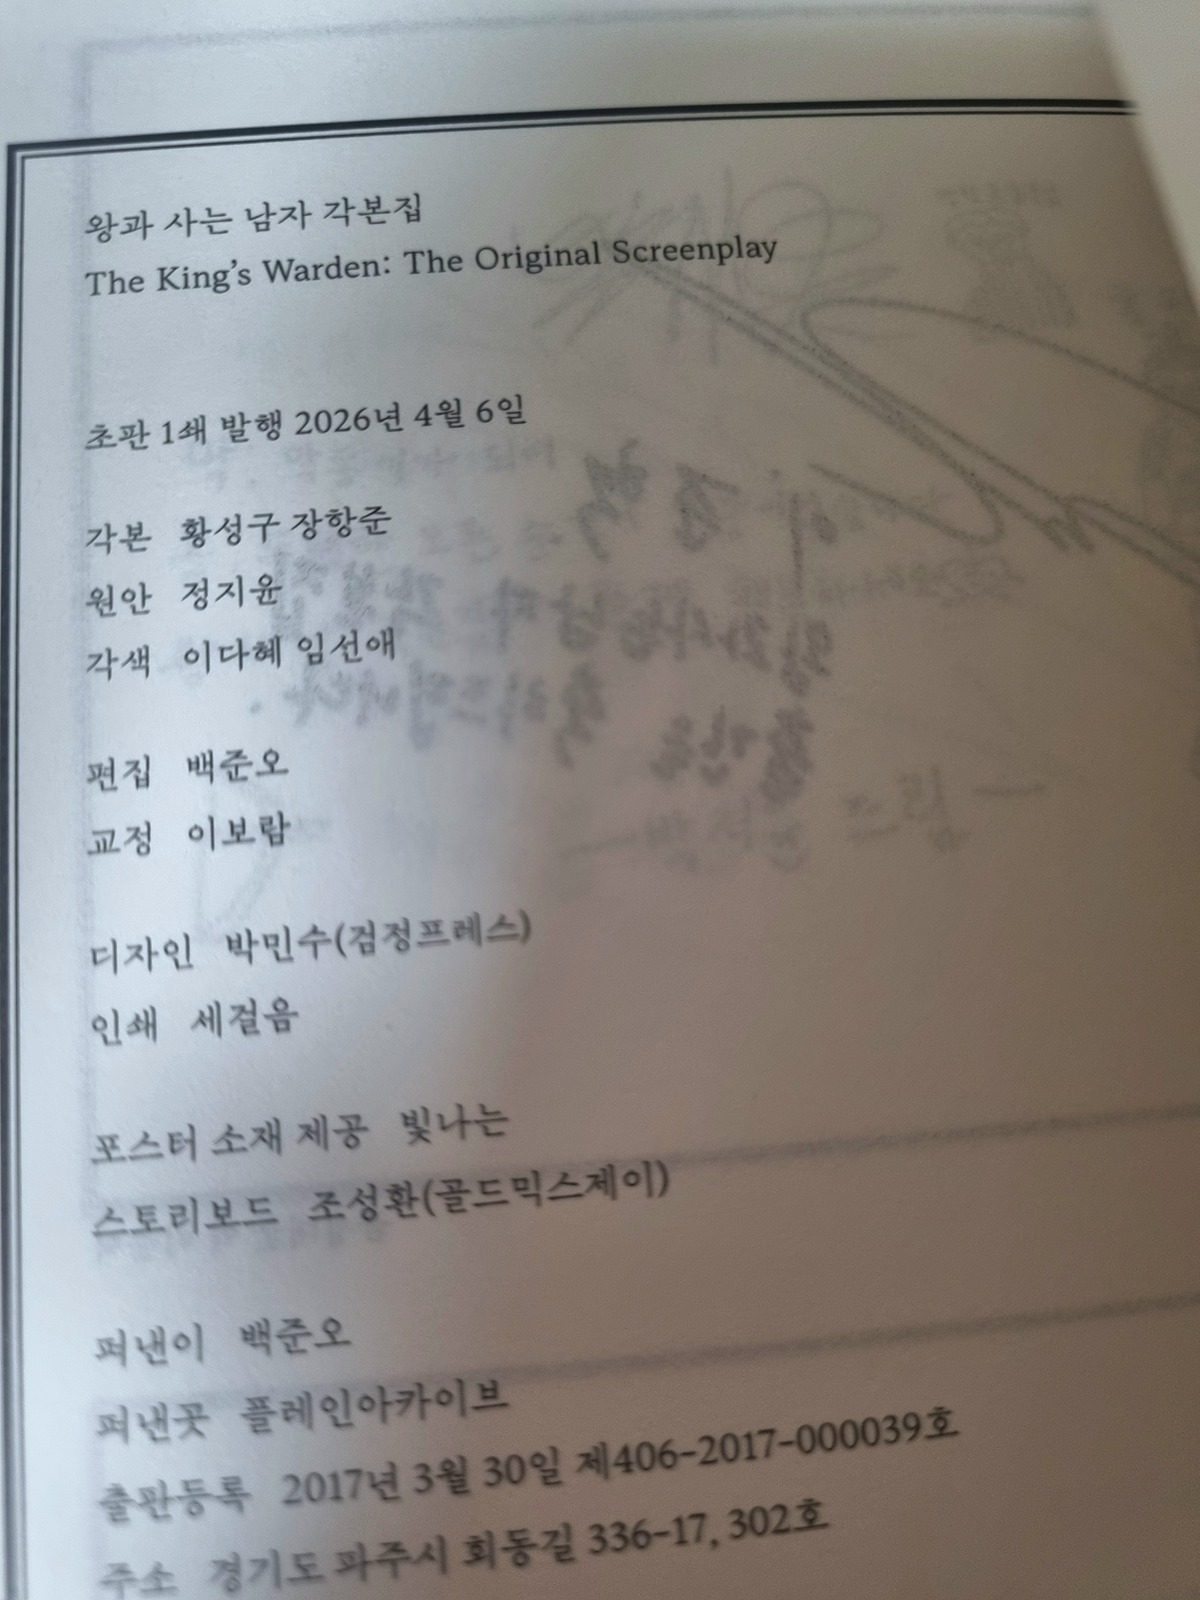 왕과 사는 남자 각본집
The King's Warden: The Original Screenplay
초판 1쇄 발행 2026년 4월 6일
각본 황성구 장항준
원안 정지윤
각색 이다혜 임선애
편집 백준오
교정 이보람
디자인 박민수(검정프레스)
인쇄 세걸음
포스터 소재 제공 빛나는
스토리보드 조성환(골드믹스제이)
펴낸이 백준오
펴낸곳 플레인아카이브
출판등록 2017년 3월 30일 제406-2017-000039호
주소 경기도 파주시 회동길 336-17, 302호